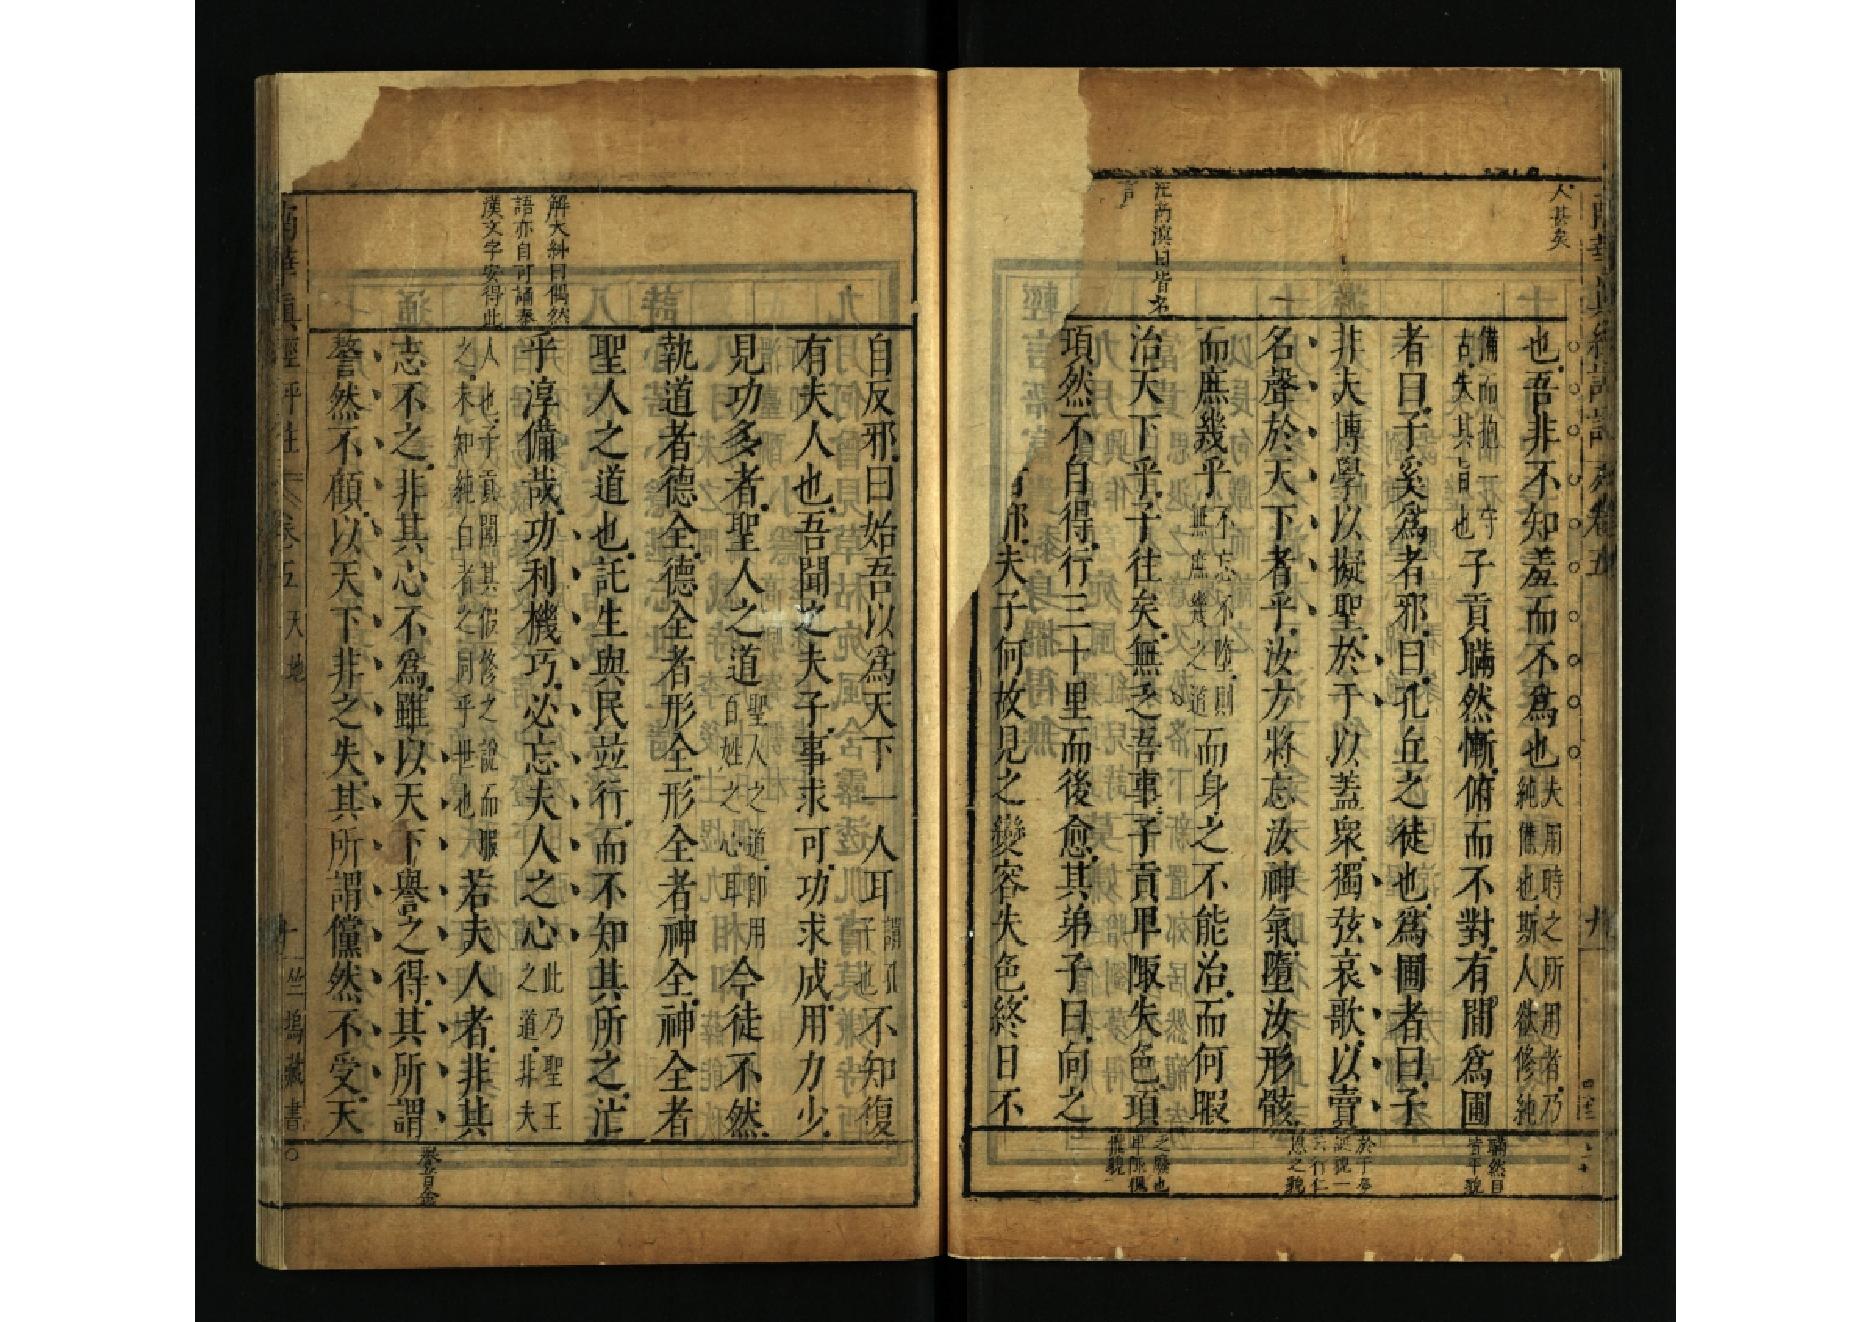 人甚矣
也吾非不知羞而不爲也夫用時之所用者乃純備也斯人欲修純
備而抱一守古失其旨也子貢瞞然慚俯而不對有間爲圃
者曰子奚爲者邪曰孔丘之徒也爲圃者曰子
非夫博學以擬聖於于以蓋衆獨弦哀歌以賣
名聲於天下者乎汝方將忘汝神氣墮汝形骸
而庶幾乎不忘不墮則無庶幾之道而身之不能治而何暇
治天下乎子往矣無乏吾事子貢卑陬失色頊
頊然不自得行三十里而後愈其弟子曰向之
邪夫子何故見之變容失色終日不
瞞然目眥平貌
自反邪曰始吾以爲天下一人耳謂孔子也不知復
有夫人也吾聞之夫子事求可功求成用力少
見功多者聖人之道聖人之道卽用百姓之心耳今徒不然
執道者德全德全者形全形全者神全神全者
聖人之道也託生與民並行而不知其所之茫
乎淳備哉功利機巧必忘夫人之心此乃聖王之道非夫
人也子貢聞其假修之說而服之未知純白者之同乎世也若夫人者非其
志不之非其心不爲雖以天下譽之得其所謂
謷然不顧以天下非之失其所謂儻然不受天
解大紳曰偶然
語亦自可誦秦
漢文字安得此
謷音敖
南華眞經評註
卷五
天地
十
竺塢藏書